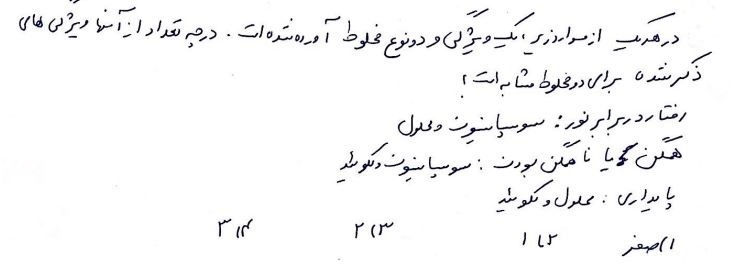 در هریک از موارد زیر، یک ویژگی و دو نوع مخلوط آورده شده است. در چه تعداد از آنها ویژگی های
ذکر شده برای دو مخلوط مشابه است؟
رفتار در برابر نور: سوسپانسیون و محلول
همگن یا ناهمگن بودن: سوسپانسیون و کلوئید
پایداری: محلول و کلوئید
۱) صفر ۲) ۱ ۳) ۲ ۴) ۳